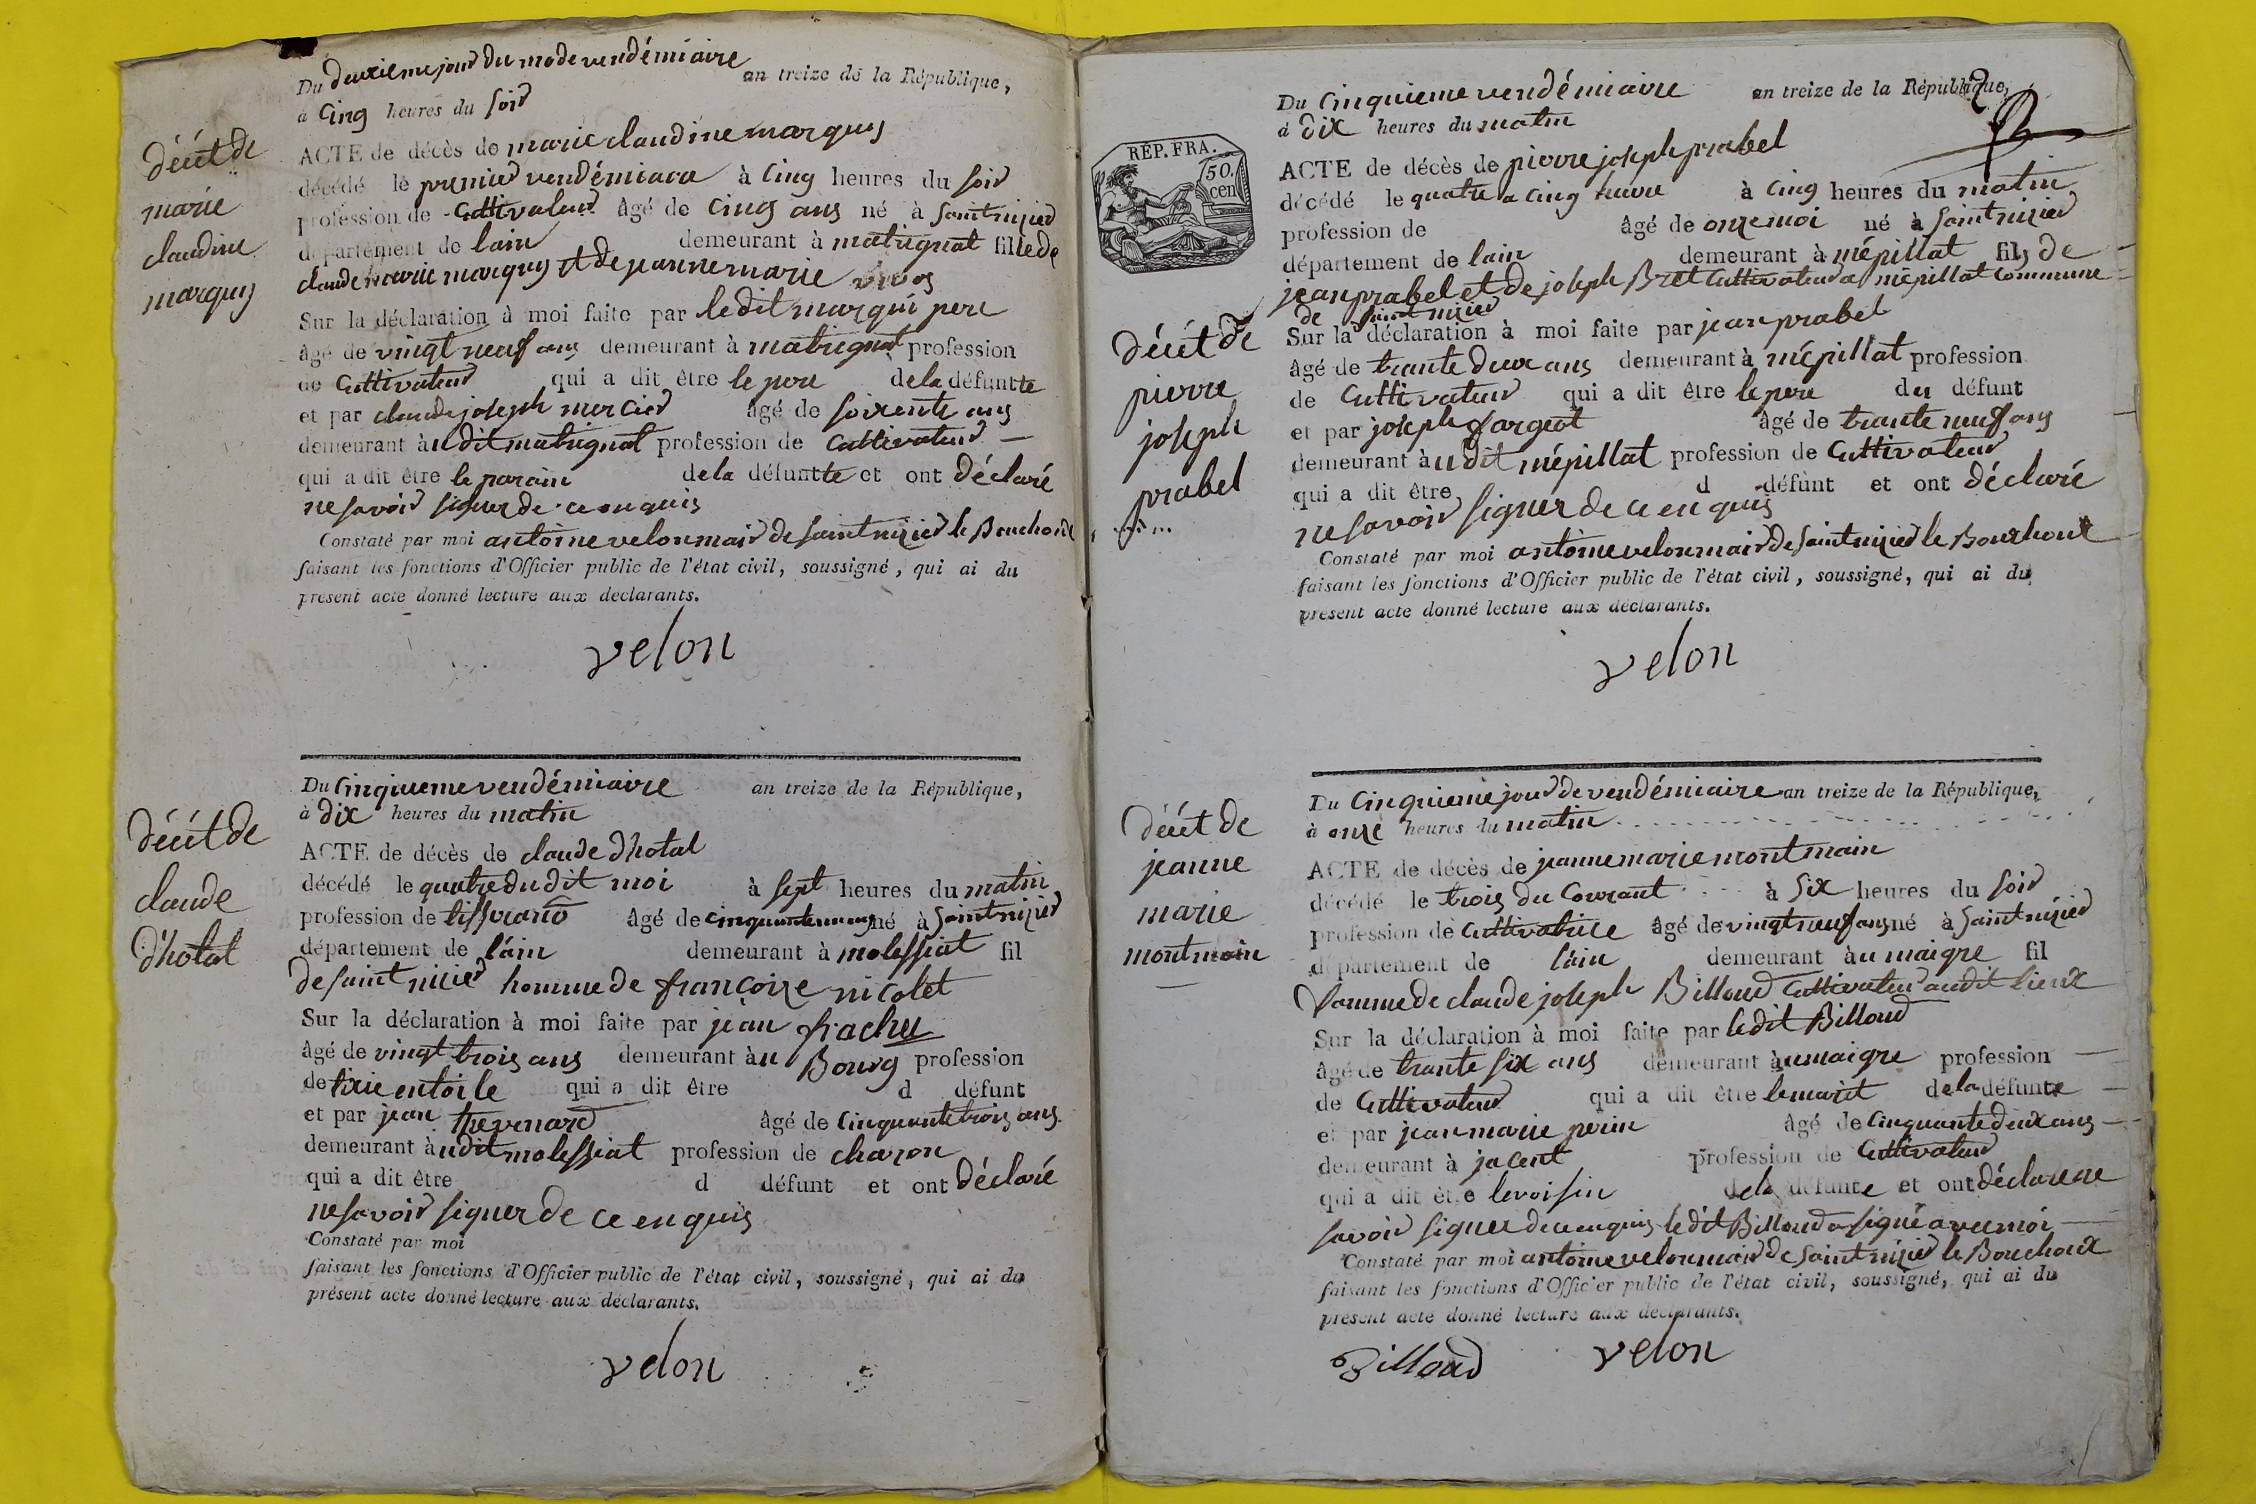 Du deuxieme jour du mo de vendémiaire an treize de la République,
à Cinq heures du soir
décét de
marie
claudine
marquis
ACTE de décès de marie claudine marquis
décédé le premier vendémiaire à Cinq heures du soir
profession de Cultivateur âgé de Cinq ans né à saint nizier
département de lain demeurant à matrignat fille de
claude marie marquis et de jeanne marie
Sur la déclaration à moi faite par le dit marqui pere
âgé de vingt neuf ans demeurant à matrignat profession
de Cultivateur qui a dit être le pere de la défuntte
et par claude joseph mercier âgé de soixente ans
demeurant àu dit matrignat profession de Cultivateur
qui a dit être le parain de la défuntte et ont déclaré
ne savoir signer de ce enquis
Constaté par moi antoine velon mair de saint nizier le Bouchoux
faisant les fonctions d'Officier public de l'état civil, soussigné, qui ai du
présent acte donné lecture aux déclarants.
velon
Du Cinquieme vendémiaire an treize de la République,
à dix heures du matin
décét de
claude
d'hotal
ACTE de décès de claude d'hotal
décédé le quatre du dit moi à sept heures du matin
profession de tisserand âgé de cinquante né à saint nizier
département de l'ain demeurant à molessiat fil
de saint nizier homme de françoize nicolet
Sur la déclaration à moi faite par jean frachu
âgé de vingt trois ans demeurant àu Bourg profession
de tixie en toile qui a dit être d défunt
et par jean thevenard âgé de Cinquante trois ans
demeurant àu dit molessiat profession de charon
qui a dit être d défunt et ont déclaré
ne savoir signer de ce enquis
Constaté par moi
faisant les fonctions d'Officier public de l'état civil, soussigné, qui ai du
présent acte donné lecture aux déclarants.
velon
Du Cinquieme vendémiaire an treize de la République,
à dix heures du matin
RÉP. FRA.
50.
cen
décét de
pierre
joseph
prabel
ACTE de décès de pierre joseph prabel
décédé le quatre a Cinq heure à Cinq heures du matin
profession de âgé de onze moi né à saint nizier
département de lain demeurant à mépillat fils de
jean prabel et de joseph Bret Cultivateur a mépillat Commune
de saint nizier
Sur la déclaration à moi faite par jean prabel
âgé de trante deux ans demeurant à mépillat profession
de Cultivateur qui a dit être le pere du défunt
et par joseph fargeot âgé de trante neuf ans
demeurant àu dit mépillat profession de Cultivateur
qui a dit être d défunt et ont déclaré
ne savoir signer de ce enquis
Constaté par moi antoine velon mair de saint nizier le Bouchoux
faisant les fonctions d'Officier public de l'état civil, soussigné, qui ai du
présent acte donné lecture aux déclarants.
velon
Du Cinquieme jour de vendémiaire an treize de la République,
à onze heures du matin
décét de
jeanne
marie
montmain
ACTE de décès de jeanne marie montmain
décédé le trois du Courant à six heures du soir
profession de Cultivatrice âgé de vingt neuf ans né à saint nizier
département de l'ain demeurant àu maigre fil
famme de claude joseph Billoud Cultivateur audit lieux
Sur la déclaration à moi faite par le dit Billoud
âgé de trante six ans demeurant àu maigre profession
de Cultivateur qui a dit être le marit de la défunte
et par jean marie perin âgé de Cinquante deux ans
demeurant à jacent profession de Cultivateur
qui a dit être le voisin de la défunte et ont déclare ne
savoir signer de ce enquis le dit Billoud a signé avec moi
Constaté par moi antoine velon mair de saint nizier le Bouchoux
faisant les fonctions d'Officier public de l'état civil, soussigné, qui ai du
présent acte donné lecture aux déclarants.
Billoud velon